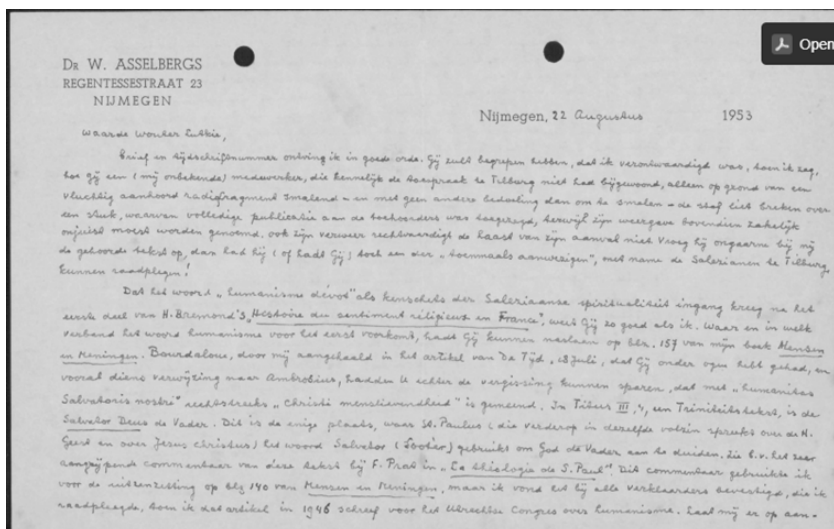 Open
DR W. ASSELBERGS
REGENTESSESTRAAT 23
NIJMEGEN
Nijmegen, 22 Augustus 1953
Waarde Wouter Lutkie,
Brief en tijdschriftnummer ontving ik in goede orde. Gij zult begrepen hebben, dat ik verontwaardigd was, toen ik zag,
hoe gij een (mij onbekende) medewerker, die kennelijk de toespraak te Tilburg niet had bijgewoond, alleen op grond van een
vluchtig aanhoord radiofragment smalend – en met geen andere bedoeling dan om te smalen – de staf liet breken over
een stuk, waarvan volledige publicatie aan de toehoorders was toegezegd, terwijl zijn weergave bovendien zakelijk
onjuist moest worden genoemd. Ook zijn verweer rechtvaardigt de haast van zijn aanval niet. Vroeg hij ongaarne bij mij
de gehoorde tekst op, dan had hij (of hadt Gij) toch een der „toenmaals aanwezigen", met name de Salesianen te Tilburg,
kunnen raadplegen!
Dat het woord „humanisme dévot" als kenschets der Salesiaanse spiritualiteit ingang kreeg na het
eerste deel van H. Bremond's „Histoire du sentiment religieux en France", weet Gij zo goed als ik. Waar en in welk
verband het woord humanisme voor het eerst voorkomt, hadt Gij kunnen naslaan op blz. 157 van mijn boek Mensen
en Meningen. Bourdaloue, door mij aangehaald in het artikel van De Tijd, 18 Juli, dat Gij onder ogen hebt gehad, en
vooral diens verwijzing naar Ambrosius, hadden U echter de vergissing kunnen sparen, dat met „humanitas
Salvatoris nostri" rechtstreeks „Christi menslievendheid" is gemeend. In Titus III, 4, een Triniteitstekst, is de
Salvator Deus de Vader. Dit is de enige plaats, waar St. Paulus (die verderop in dezelfde volzin spreekt over de H.
Geest en over Jesus Christus) het woord Salvator (Sootèr) gebruikt om God de Vader aan te duiden. Zie b.v. het zeer
aangrijpende commentaar van deze tekst bij F. Prat in „La théologie de S. Paul". Dit commentaar gebruikte ik
voor de uiteenzetting op blz 140 van Mensen en Meningen, maar ik vond het bij alle verklaarders bevestigd, die ik
raadpleegde, toen ik dat artikel in 1946 schreef voor het Utrechtse Congres over humanisme. Laat mij er op aan-